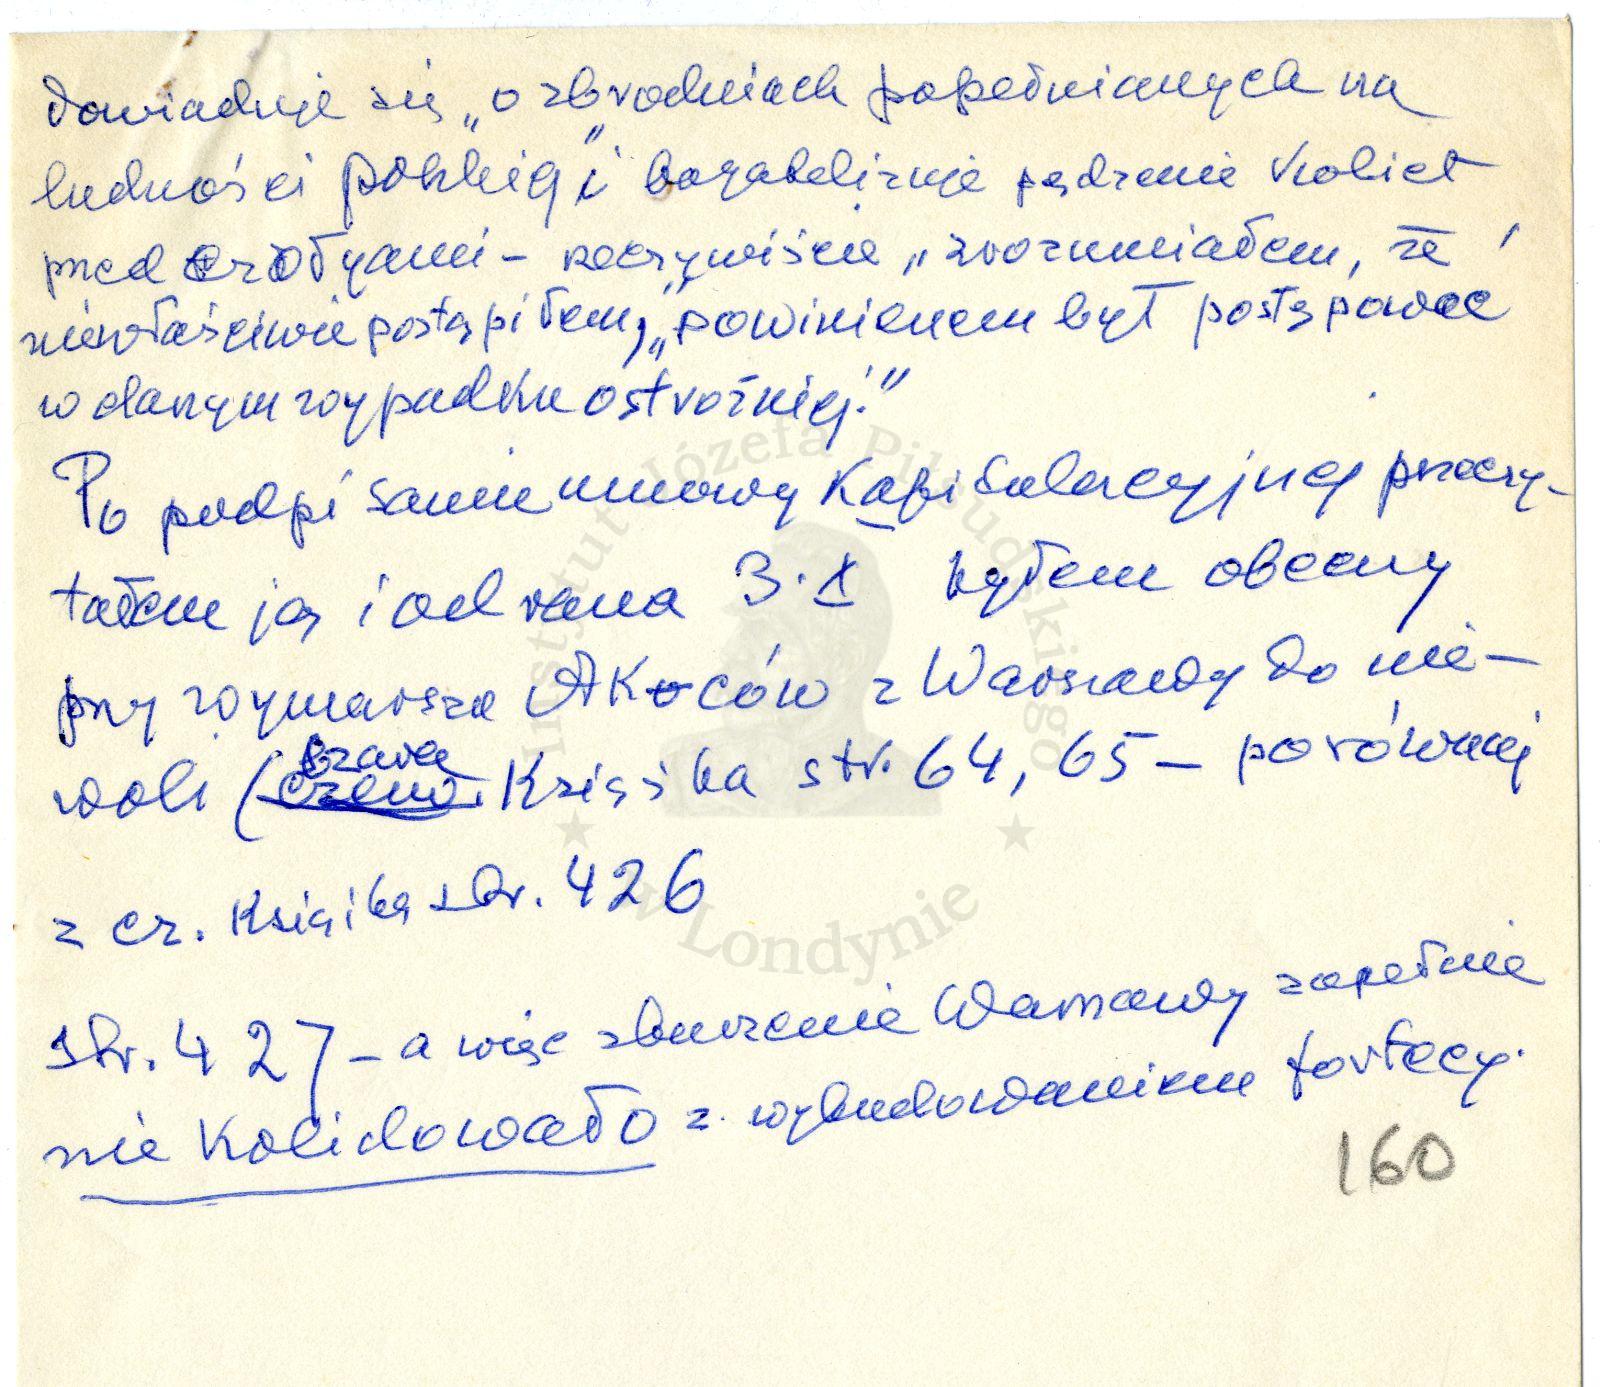 dowiaduje się „o zbrodniach popełnianych na
ludności polskiej” i bagatelizuje pędzenie kobiet
przed czołgami – rzeczywiście „zrozumiałem, że
niewłaściwie postąpiłem, „powinienem był postępować
w danym wypadku ostrożniej.”
Po podpisaniu umowy Kapitulacyjnej przeczy-
tałem ją i od rana 3.X byłem obecny
przy wymarszu AKców z Warszawy do nie-
woli (szara Książka str. 64, 65 – porównaj
z cz. Książką str. 426
str. 427 – a więc zburzenie Warszawy zupełnie
nie Kolidowało z wybudowaniem fortecy.
160
Instytut Józefa Piłsudskiego
w Londynie